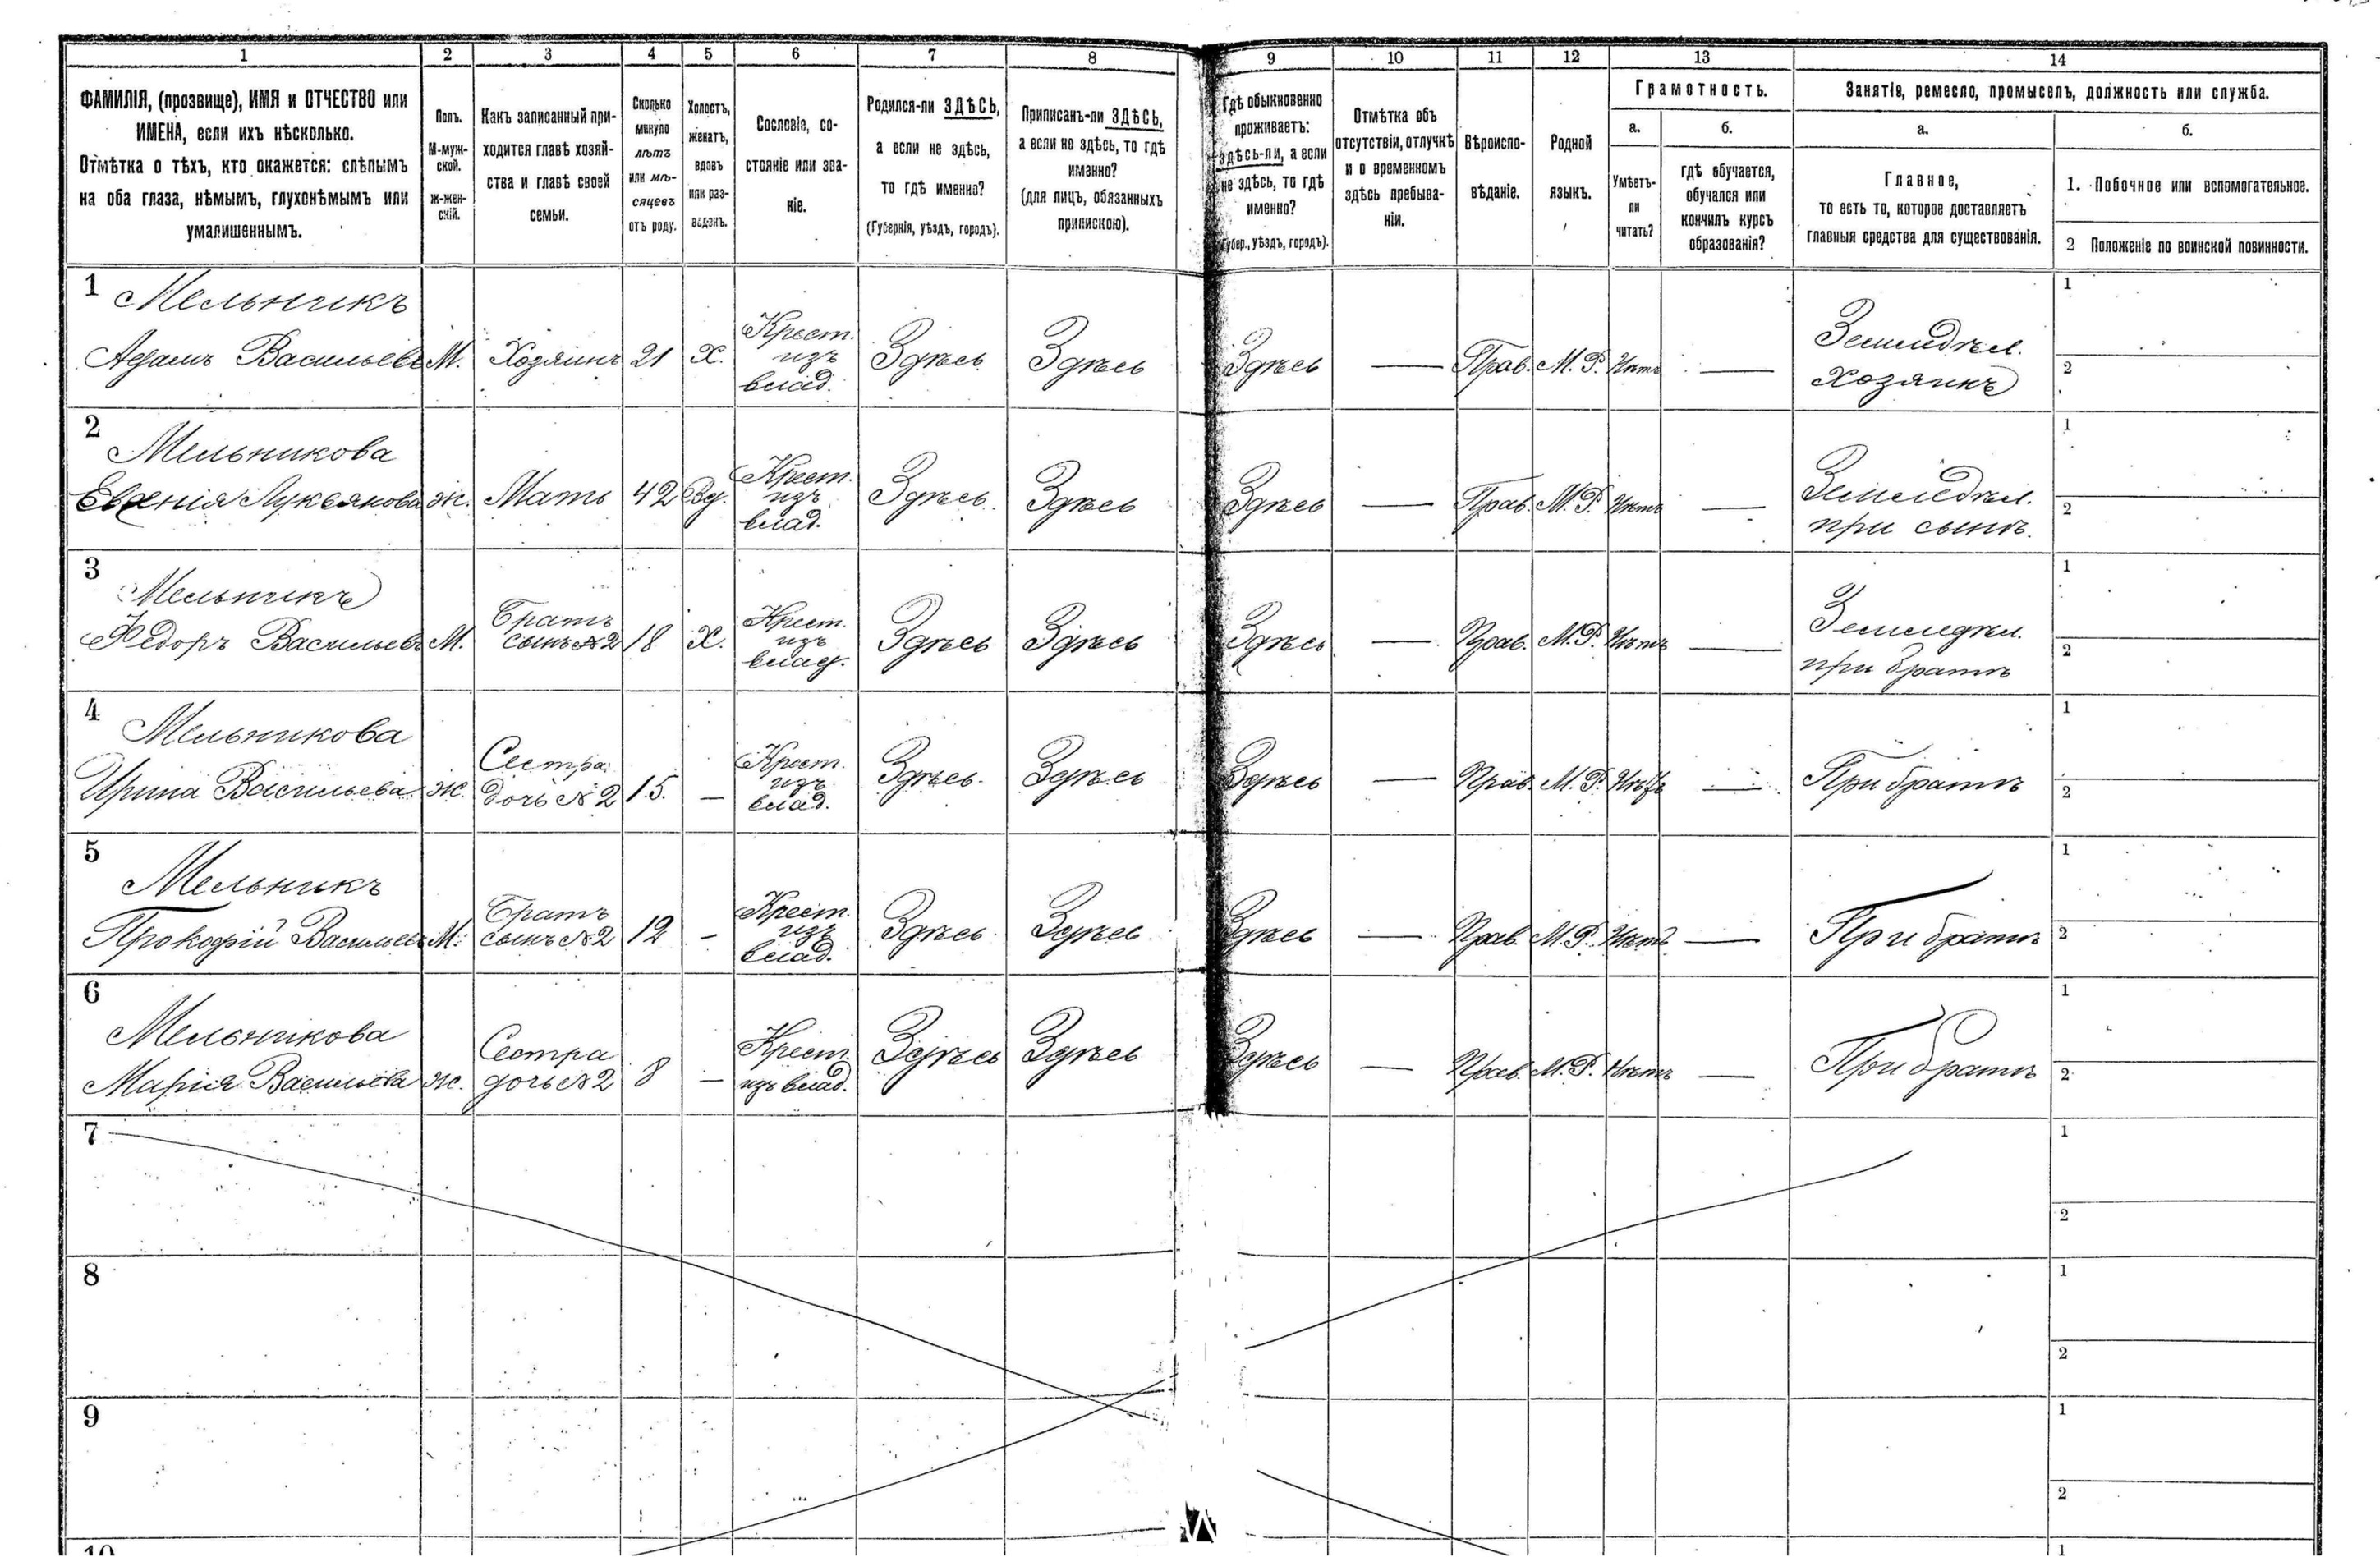 1 2 3 4 5 6 7 8 9 10 11 12 13 14
ФАМИЛІЯ, (прозвище), ИМЯ и ОТЧЕСТВО или
ИМЕНА, если ихъ нѣсколько.
Отмѣтка о тѣхъ, кто окажется: слѣпымъ
на оба глаза, нѣмымъ, глухонѣмымъ или
умалишеннымъ.
Полъ.
М-муж-
ской.
Ж-жен-
скій.
Какъ записанный при-
ходится главѣ хозяй-
ства и главѣ своей
семьи.
Сколько
минуло
лѣтъ
или мѣ-
сяцевъ
отъ роду.
Холостъ,
женатъ,
вдовъ
или раз-
веденъ.
Сословіе, со-
стояніе или зва-
ніе.
Родился-ли ЗДѢСЬ,
а если не здѣсь,
то гдѣ именно?
(Губернія, уѣздъ, городъ).
Приписанъ-ли ЗДѢСЬ,
а если не здѣсь, то гдѣ
именно?
(для лицъ, обязанныхъ
припискою).
Гдѣ обыкновенно
проживаетъ:
здѣсь-ли, а если
не здѣсь, то гдѣ
именно?
(Губер., уѣздъ, городъ).
Отмѣтка объ
отсутствіи, отлучкѣ
и о временномъ
здѣсь пребыва-
ніи.
Вѣроиспо-
вѣданіе.
Родной
языкъ.
Грамотность.
а.
Умѣетъ-
ли
читать?
б.
гдѣ обучается,
обучался или
кончилъ курсъ
образованія?
Занятіе, ремесло, промыселъ, должность или служба.
а.
Главное,
то есть то, которое доставляетъ
главныя средства для существованія.
б.
1. Побочное или вспомогательное.
2 Положеніе по воинской повинности.
1 Мельникъ
Адамъ Васильевъ М. Хозяинъ 21 Х. Крест. изъ влад. Здѣсь Здѣсь Здѣсь — Прав. М. Р. Нѣтъ — Земледѣл. хозяинъ 1 2
2 Мельникова
Евгенія Лукьянова Ж. Мать 42 Вд. Крест. изъ влад. Здѣсь Здѣсь Здѣсь — Прав. М. Р. Нѣтъ — Земледѣл. при сынѣ. 1 2
3 Мельникъ
Федоръ Васильевъ М. Братъ сынъ №2 18 Х. Крест. изъ влад. Здѣсь Здѣсь Здѣсь — Прав. М. Р. Нѣтъ — Земледѣл. при братѣ 1 2
4 Мельникова
Ирина Васильева Ж. Сестра дочь №2 15. — Крест. изъ влад. Здѣсь Здѣсь Здѣсь — Прав. М. Р. Нѣтъ — При братѣ 1 2
5 Мельникъ
Прокофій Васильевъ М. Братъ сынъ №2 12 — Крест. изъ влад. Здѣсь Здѣсь Здѣсь — Прав. М. Р. Нѣтъ — При братѣ 1 2
6 Мельникова
Марія Васильева Ж. Сестра дочь №2 8 — Крест. изъ влад. Здѣсь Здѣсь Здѣсь — Прав. М. Р. Нѣтъ — При братѣ 1 2
7 1 2
8 1 2
9 1 2
10 1